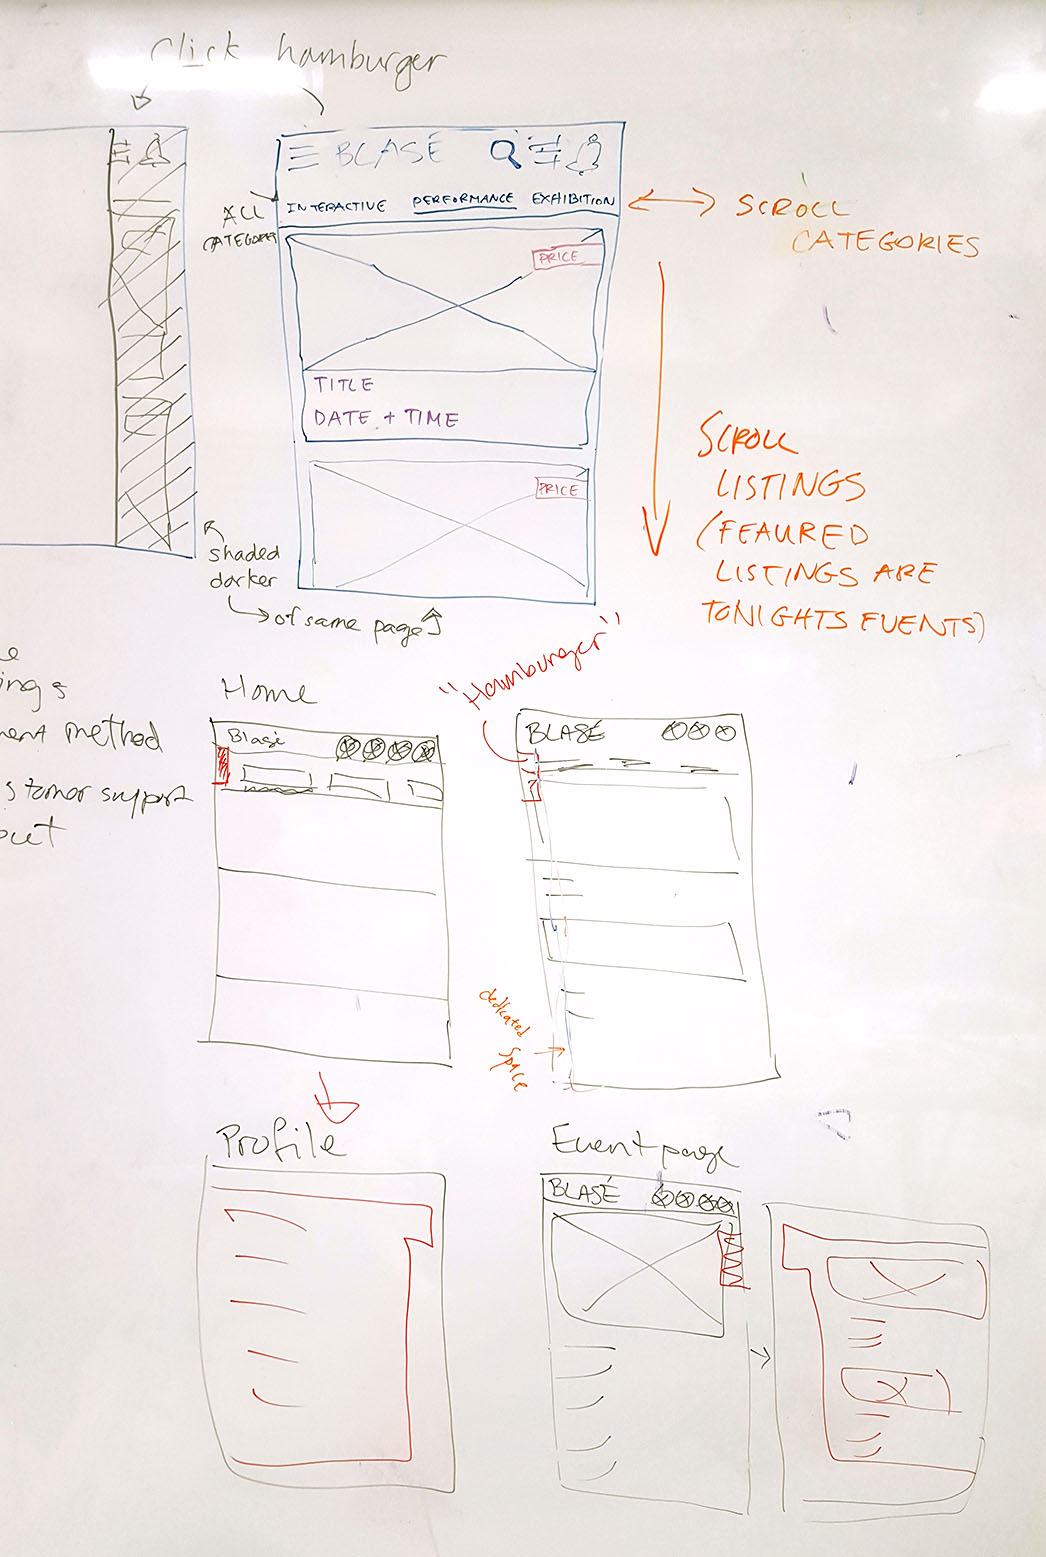 Click hamburger
BLASÉ
ALL
CATEGORIES
INTERACTIVE PERFORMANCE EXHIBITION
SCROLL
CATEGORIES
PRICE
TITLE
DATE + TIME
SCROLL
LISTINGS
(FEAURED
LISTINGS ARE
TONIGHTS EVENTS)
PRICE
shaded
darker
of same page
"Hamburger"
Home
method
support
Blasé
BLASÉ
dedicated
space
Profile
Event page
BLASÉ